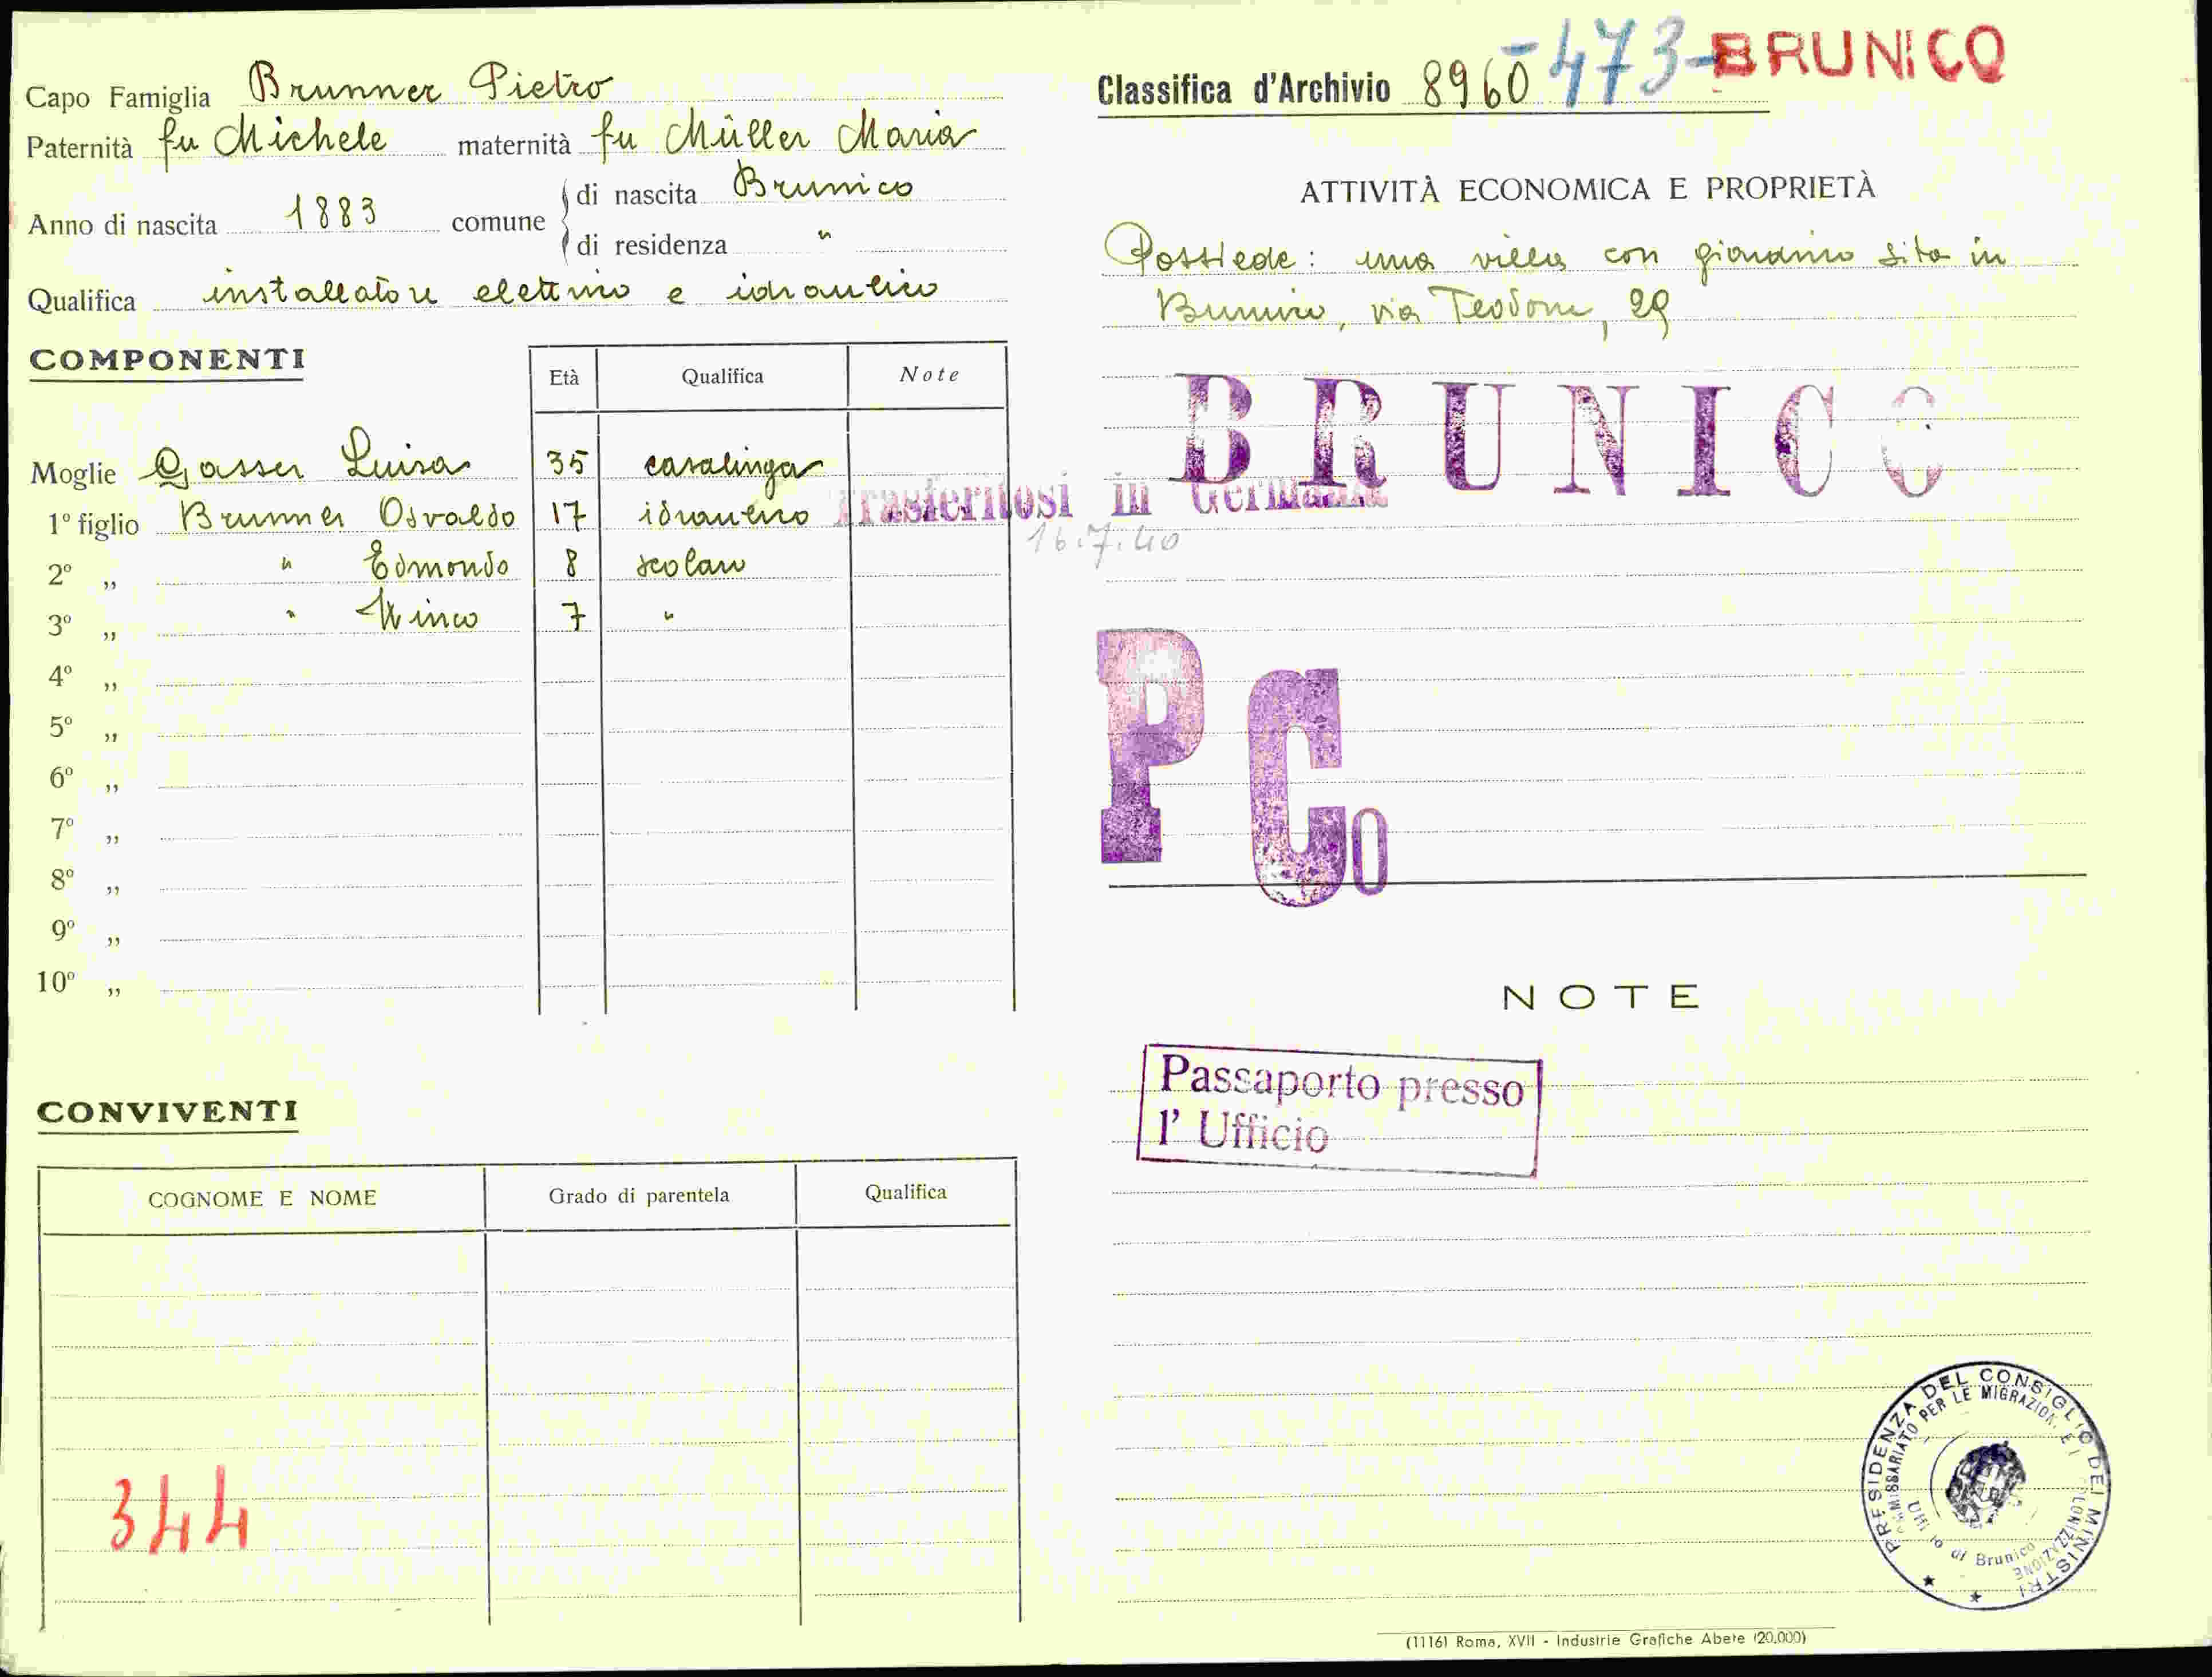 Capo Famiglia Brunner Pietro
Paternità fu Michele maternità fu Müller Maria
Anno di nascita 1883 comune di nascita Brunico
di residenza "
Qualifica installatore elettrico e idraulico
COMPONENTI
Età Qualifica Note
Moglie Gasser Luisa 35 casalinga
1º figlio Brunner Osvaldo 17 idraulico
2º „ " Edmondo 8 scolaro
3º „ " 7 "
4º „
5º „
6º „
7º „
8º „
9º „
10º „
CONVIVENTI
COGNOME E NOME Grado di parentela Qualifica
344
Classifica d'Archivio 8960 -473- BRUNICO
ATTIVITÀ ECONOMICA E PROPRIETÀ
Possiede: una villa con giardino sita in
Brunico, via Teodone, 29
BRUNICO
Trasferitosi in Germania
16.7.40
P Co
NOTE
Passaporto presso
l' Ufficio
PRESIDENZA DEL CONSIGLIO DEI MINISTRI
COMMISSARIATO PER LE MIGRAZIONI E LA COLONIZZAZIONE
Ufficio di Brunico
(1116) Roma, XVII - Industrie Grafiche Abete (20.000)